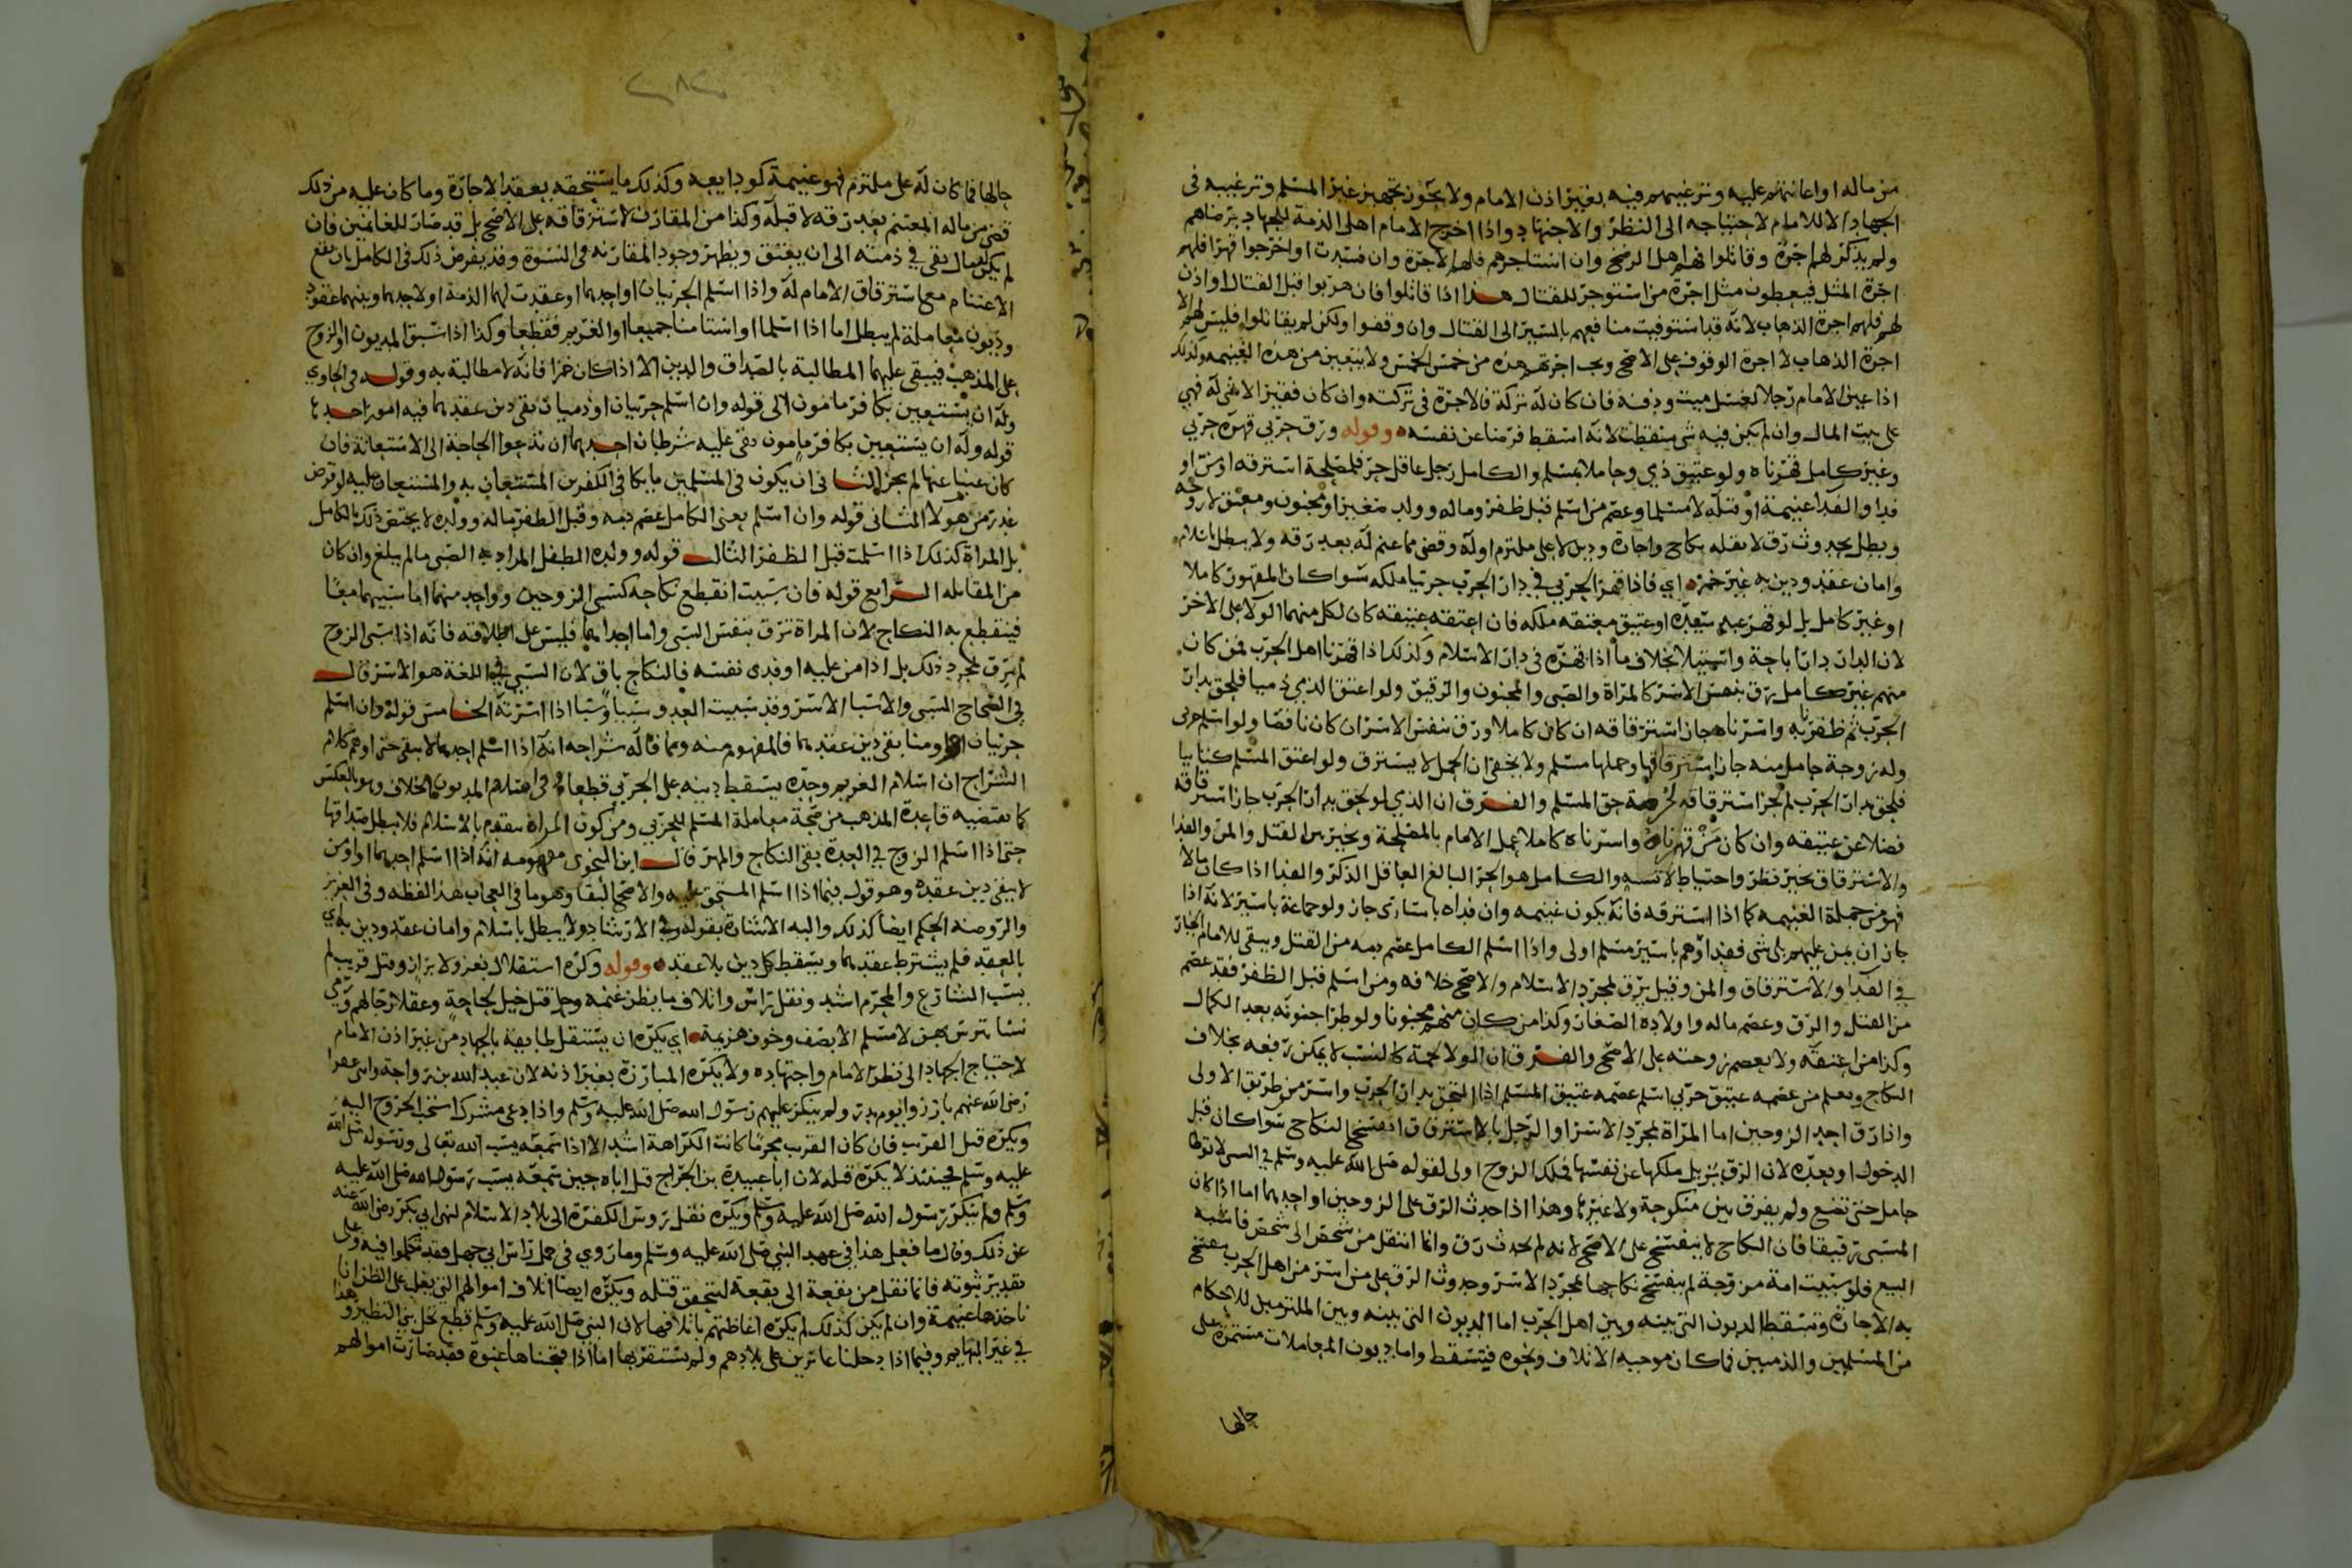 من ماله او اعانتهم عليه وترغيبهم فيه بغير اذن الامام ولا يجوز تجهيز غير المسلم وترغيبه في
الجهاد الا للامام لاحتياجه الى النظر والاجتهاد واذا اخرج الامام اهل الذمة للجهاد برضاهم
ولم يذكر لهم اجرة وقاتلوا فلهم الرضخ وان استاجرهم فلهم الاجرة وان فسدت او اخرجوا قهرا فلهم
اجرة المثل فيعطون مثل اجرة من استوجر للقتال هذا اذا قاتلوا فان هربوا قبل القتال او اذن
لهم فلهم اجرة الذهاب لانه قد استوفيت منافعهم بالمسير الى القتال وان وقفوا ولكن لم يقاتلوا فليس لهم الا
اجرة الذهاب لا اجرة الوقوف على الاصح ويجب اجرتهم هذه من خمس الخمس ولا يتعين من هذه الغنيمه وكذلك
اذا عين الامام رجلا لغسل ميت ودفنه فان كان له تركة فالاجرة في تركته وان كان فقيرا لا شى له فهي
على بيت المال وان لم يكن فيه شى سقطت لانه اسقط فرضا عن نفسه وقوله ورق حربي قهره حربي
وغير كامل قهرناه ولو عتيق ذمي وحاملا بمسلم والكامل رجل عاقل حر فلمصلحة استرقه او من او
فدا والفدا غنيمة او قتله لا مسلما وعصم من اسلم قبل ظفر وماله وولد صغير او مجنون ومعتق لا زوجه
وبطل بحدوث رق لا بنقله نكاح واجارة ودين لا على ملتزم او له وقضى مما غنم له بعد رقه ولا يبطل باسلام
وامان عقد ودين به غير خمر اي فاذا قهر الحربي في دار الحرب حربيا ملكه سوا كان المقهور كاملا
او غير كامل بل لو قهر عبد سيده او عتيق معتقه ملكه فان اعتقه عتيقه كان لكل منهما الولا على الاخر
لان الدار دار اباحة واستيلا بخلاف ما اذا قهره في دار الاسلام وكذلك اذا قهرنا اهل الحرب فمن كان
منهم غير كامل رق بنفس الاسر كالمراة والصبى والمجنون والرقيق ولو اعتق الذمي ذميا فلحق بدار
الحرب ثم ظفرنا به واسرناه جاز استرقاقه ان كان كاملا ورق بنفس الاسر ان كان ناقصا ولو اسلم حربى
وله زوجة حامل منه جاز استرقاقها وحملها مسلم ولا يخفى ان الحمل لا يسترق ولو اعتق المسلم كتابيا
فلحق بدار الحرب لم يجز استرقاقه لحرمة حق المسلم والفرق ان الذمي لو لحق بدار الحرب جاز استرقاقه
فضلا عن عتيقه وان كان من قهرناه واسرناه كاملا عمل الامام بالمصلحة وتخير بين القتل والمن والفدا
والاسترقاق تخير نظر واحتياط لا تشه والكامل هو الحر البالغ العاقل الذكر والفدا اذا كان مالا
فهو من جملة الغنيمه كما اذا استرقه فانه يكون غنيمه وان فداه باسارى جاز ولو جماعة باسير لانه اذا
جاز ان يمن عليهم بلا شى ففداوهم باسير مسلم اولى واذا اسلم الكامل عصم دمه من القتل ويبقى للامام الخيار
في الفدا والاسترقاق والمن وقيل يرق بمجرد الاسلام والاصح خلافه ومن اسلم قبل الظفر فقد عصم
من القتل والرق وعصم ماله واولاده الصغار وكذا من كان منهم مجنونا ولو طرا جنونه بعد الكمال
وكذا من اعتقه ولا يعصم زوجته على الاصح والفرق ان الولا لحمة كالنسب لا يمكن رفعه بخلاف
النكاح ويعلم من عصمه عتيق حربي اسلم عصمه عتيق المسلم اذا التحق بدار الحرب واسر من طريق الاولى
واذا رق احد الزوجين اما المراة بمجرد الاسر او الرجل بالاسترقاق انفسخ النكاح سوا كان قبل
الدخول او بعده لان الرق يزيل ملكها عن نفسها فملك الزوج اولى لقوله صلى الله عليه وسلم في السبى لا توطا
حامل حتى تضع ولم يفرق بين منكوحة ولا غيرها وهذا اذا حدث الرق على الزوجين او احدهما اما اذا كان
المسبى رقيقا فان النكاح لا ينفسخ على الاصح لانه لم يحدث رق وانما انتقل من شخص الى شخص فاشبه
البيع فلو سبيت امة مزوجة لم ينفسخ نكاحها بمجرد الاسر وحدوث الرق على من اسر من اهل الحرب ينفسخ
به الاجارة وتسقط الديون التي بينه وبين اهل الحرب اما الديون التي بينه وبين الملتزمين للاحكام
من المسلمين والذميين فما كان موجبه الاتلاف ونحوه فيسقط واما ديون المعاملات مستمرة على
حالها
٢٨٢
حالها فما كان له على ملتزم فهو غنيمة كودايعه وكذلك ما يستحقه بعقد الاجارة وما كان عليه من ذلك
قضى من ماله المغتنم بعد رقه لا قبله وكذا من المقارن لاسترقاقه على الاصح بل قد صار للغانمين فان
لم يكن له مال بقي في ذمته الى ان يعتق ويظهر وجود المقارنه في النسوة وقد يفرض ذلك في الكامل بان يقع
الاغتنام مع استرقاق الامام له واذا اسلم الحربيان او احدهما او عقدت لهما الذمة او لاحدهما وبينهما عقود
وديون معاملة لم يبطل اما اذا اسلما او استامنا جميعا او الغريم فقطعا وكذا اذا سبق المديون او الزوج
على المذهب فيبقى عليهما المطالبة بالصداق والدين الا اذا كان خمرا فانه لا مطالبة به وقوله في الحاوي
وله ان يستعين بكافر مامون الى قوله وان اسلم حربيان او ذميان بقى دين عقدهما فيه امور احدها
قوله وله ان يستعين بكافر مامون بقى عليه شرطان احدهما ان تدعوا الحاجة الى الاستعانة فان
كان غنيا عنها لم يجز الثانى ان يكون في المسلمين ما يكافي الكفرين المستعان به والمستعان عليه لو فرض
غدر من هولا الثانى قوله وان اسلم يعنى الكامل عصم دمه وقبل الظفر ماله وولده لا يختص ذلك بالكامل
بل المراة كذلك اذا اسلمت قبل الظفر الثالث قوله وولده الطفل المراد به الصبى مالم يبلغ وان كان
من المقاتله الرابع قوله فان سبيت انقطع نكاحه كسبى الزوجين وواحد منهما اما سبيهما معًا
فينقطع به النكاح لان المراة ترق بنفس السبى واما احدهما فليس على اطلاقه فانه اذا سبى الزوج
لم يرق بمجرد ذلك بل اذا من عليه او فدى نفسه فالنكاح باق لان السبي في اللغة هو الاسر قال
في الصحاح السبى والاسبا الاسر وقد سبيت العدو سبيا وسبا اذا اسرته الخامس قوله وان اسلم
حربيان او امنا بقى دين عقدهما فالمفهوم منه ومما قاله شراحه انه اذا اسلم احدهما لا يبقى حتى اوهم كلام
الشراح ان اسلام الغريم وحده يسقط دينه على الحربي قطعا وفي اسلام المديون الخلاف وهو بالعكس
كما تقتضيه قاعدة المذهب من صحة معاملة المسلم للحربي ومن كون المراة تتقدم بالاسلام فلا يبطل صداقها
حتى اذا اسلم الزوج في العدة بقى النكاح والمهر قال ابن النحوى مفهومه انه اذا اسلم احدهما او اومن
لا يبقى دين عقده وهو قول فيما اذا اسلم المستحق عليه والاصح البقا وهو ما في العجاب هذا لفظه وفي العزيز
والروضة الحكم ايضا كذلك واليه الاشارة بقوله في الارشاد ولا يبطل باسلام وامان عقد ودين به اي
بالعقد فلم يشترط عقدهما ويسقط كل دين بلا عقد وقوله وكره استقلال بغزو لا براز وقتل قريب لم
يسب الشارع والمحرم اشد ونقل راس واتلاف ما يظن غنمه وحل قتل خيل لحاجة وعقلا رجالهم ورمي
نسا ترس بهن لا مسلم الا بصف وخوف هزيمة اي يكره ان يستقل طايفة بالجهاد من غير اذن الامام
لاحتياج الجهاد الى نظر الامام واجتهاده ولا يكره المبارزة بغير اذنه لان عبد الله بن رواحة وابنى عفرا
رضى الله عنهم بارزوا يوم بدر ولم ينكر عليهم رسول الله صلى الله عليه وسلم واذا دعى مشرك استحب الخروج اليه
ويكره قتل القريب فان كان القريب محرمًا كانت الكراهة اشد الا اذا سمعه يسب الله تعالى ورسوله صلى الله
عليه وسلم فحينئذ لا يكره قتله لان ابا عبيدة بن الجراح قتل اباه حين سمعه يسب رسول الله صلى الله عليه
وسلم ولم ينكر رسول الله صلى الله عليه وسلم ويكره نقل روس الكفرة الى بلاد الاسلام لنهى ابي بكر رضى الله عنه
عن ذلك وقال ما فعل هذا في عهد النبي صلى الله عليه وسلم وما روي في حمل راس ابي جهل فقد تكلموا فيه وعلى
تقدير ثبوته فانما نقل من بقعة الى بقعة ليتحقق قتله ويكره ايضا اتلاف اموالهم التي يغلب على الظن انا
ناخذها غنيمة وان لم يكن كذلك لم يكره اغاظتهم باتلافها لان النبي صلى الله عليه وسلم قطع نخل بنى النضير وهذا
في غير البهايم وفيما اذا دخلنا غازين على بلادهم ولم يستقر بها اما اذا فتحناها عنوة فقد صارت اموالهم